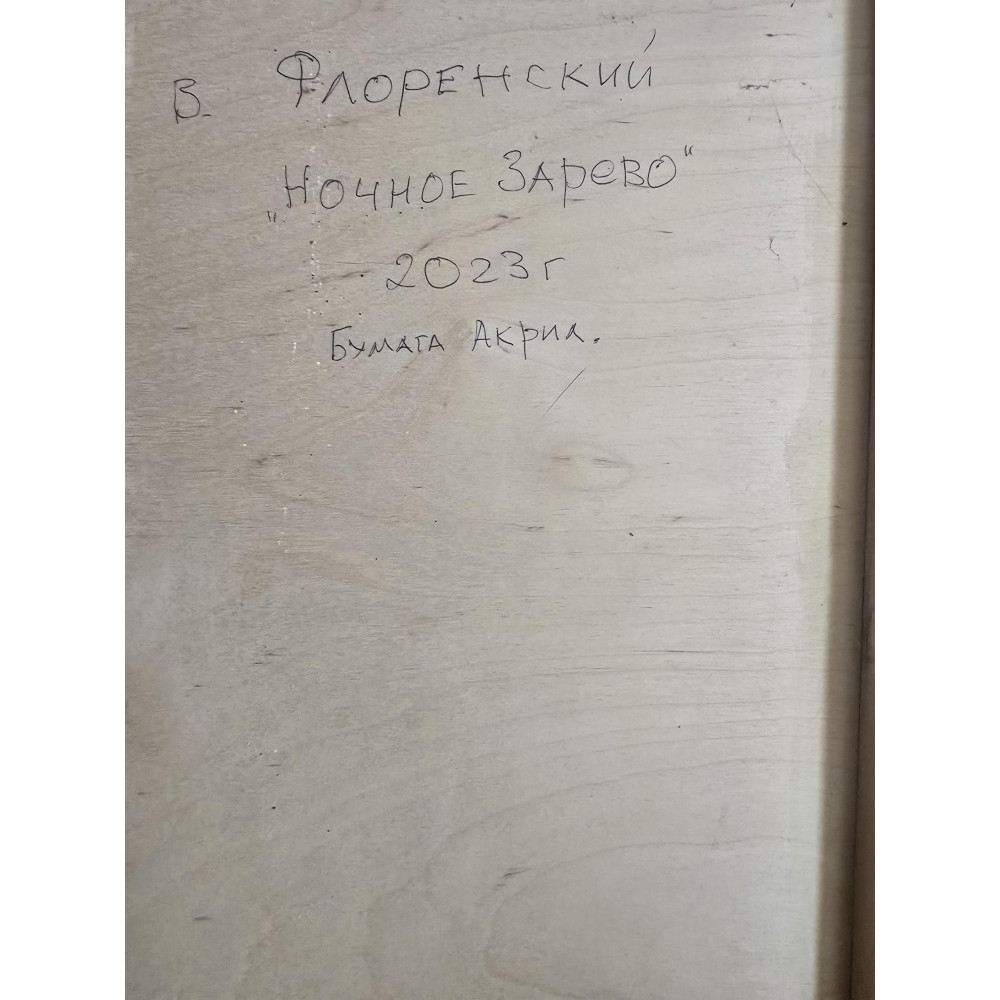 В. Флоренский
„Ночное Зарево“
2023 г
Бумага Акрил.